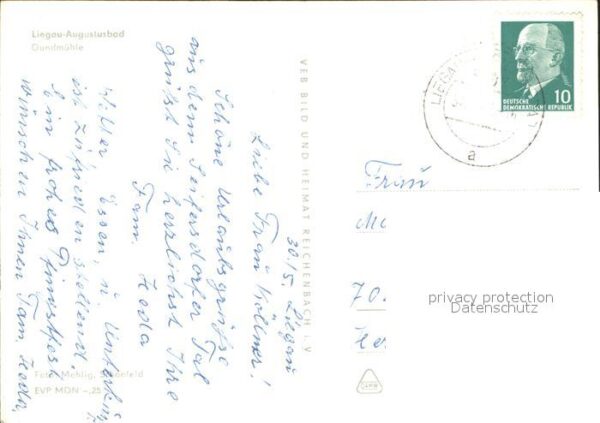 Liegau-Augustusbad
Grundmühle
30/5 Liegau
Liebe Frau Köllmer!
Schöne Urlaubsgrüße
aus dem Seifersdorfer Tal
grüßt Sie herzlichst Ihre
Fam. Hoda
Wetter Essen, u Unterkunft
ist zufriedenstellend.
Ein frohes Pfingstfest
wünschen Ihnen Fam. Hoda
Foto: Mehlig, Schönfeld
EVP MDN -,25
VEB BILD UND HEIMAT REICHENBACH i. V
10
DEUTSCHE
DEMOKRATISCHE REPUBLIK
LIEGAU
a
Frau
70.
privacy protection
Datenschutz